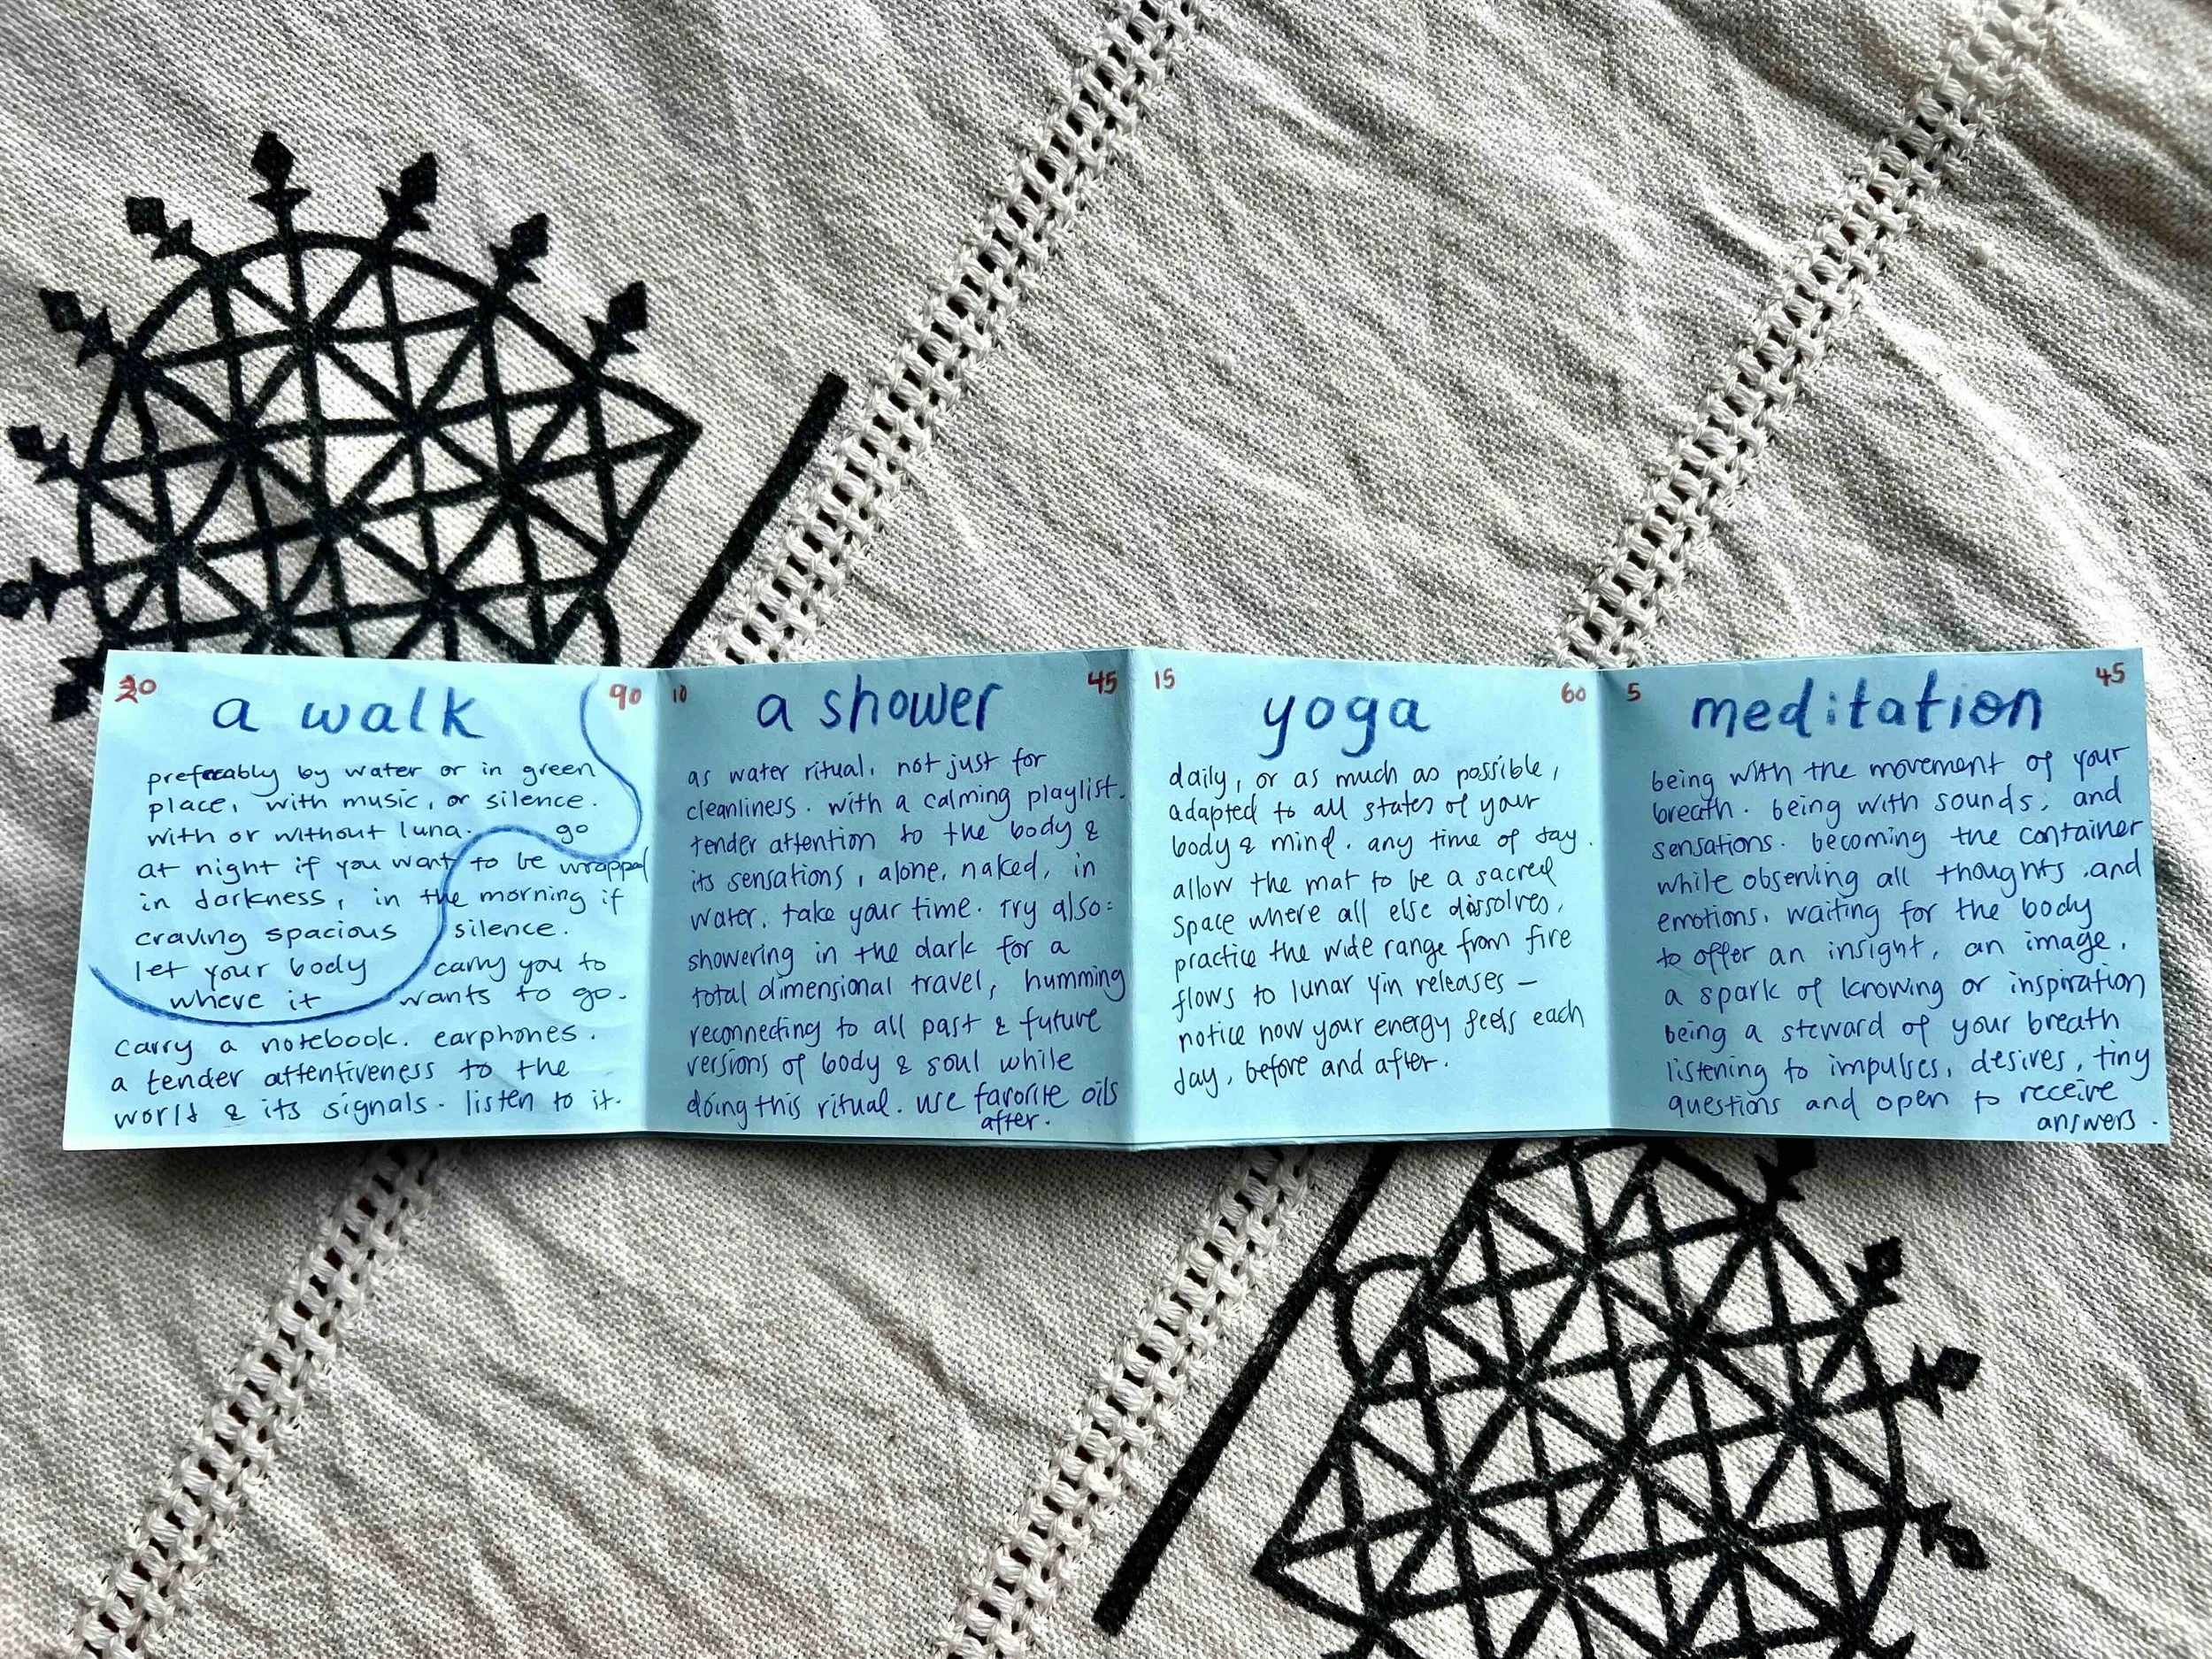 20 90
a walk
preferably by water or in green
place, with music, or silence.
with or without luna. go
at night if you want to be wrapped
in darkness, in the morning if
craving spacious silence.
let your body carry you to
where it wants to go.
carry a notebook. earphones.
a tender attentiveness to the
world & its signals. listen to it.
10 45
a shower
as water ritual, not just for
cleanliness. with a calming playlist.
tender attention to the body &
its sensations, alone, naked, in
water. take your time. try also:
showering in the dark for a
total dimensional travel, humming
reconnecting to all past & future
versions of body & soul while
doing this ritual. use favorite oils
after.
15 60
yoga
daily, or as much as possible,
adapted to all states of your
body & mind. any time of day.
allow the mat to be a sacred
space where all else dissolves,
practice the wide range from fire
flows to lunar yin releases —
notice how your energy feels each
day, before and after.
5 45
meditation
being with the movement of your
breath. being with sounds, and
sensations. becoming the container
while observing all thoughts and
emotions, waiting for the body
to offer an insight, an image,
a spark of knowing or inspiration
being a steward of your breath
listening to impulses, desires, tiny
questions and open to receive
answers.